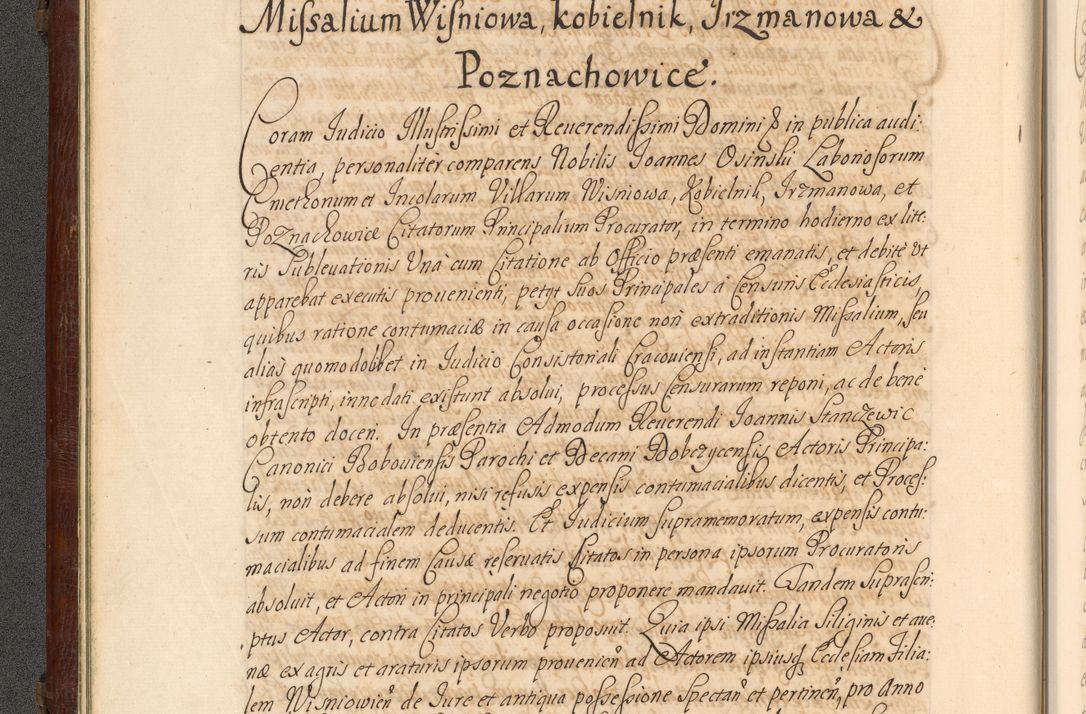 Missalium Wiśniowa, kobielnik, Jrzmanowa &
Poznachowice.
Coram Judicio Illustrissimi et Reuerendissimi Domini & in publica audi:
entia, personaliter comparens Nobilis Joannes Osinskii Laboriosorum
Cmethonum et Incolarum Villarum Wisniowa, Kobielnik, Jrzmanowa, et
Poznachowice Citatorum Principalium Procurator, in termino hodierno ex litt:
ris Subleuationis Vna cum Citatione ab Officio præsenti emanatis, et debite vt
apparebat executis prouenienti, petyt suos Principales a Censuris Ecclesiasticis,
quibus ratione contumaciæ in causa occasione non extraditionis Missalium, seu
alias quomodolibet in Judicio Consistoriali Cracouiensi, ad instantiam Actoris
infrascripti, innodati existunt absolui, processus Censurarum reponi, ac de bene
obtento doceri. In præsentia Admodum Reuerendi Joannis Stanczewic
Canonici Bobouiensis Parochi et Decani Dobczycensis Actoris Principa:
lis, non debere absolui, nisi refusis expensis contumacialibus dicentis, et Proces:
sum contumacialem deducentis. Et Judicium supramemoratum, expensis contu:
macialibus ad finem Causæ reseruatis Citatos in persona ipsorum Procuratoris
absoluit, et Actori in principali negotio proponere mandauit. Tandem suprascri:
ptus Actor, contra Citatos Verbo proposuit. Quia ipsi Missalia Siliginis et aue:
næ ex agris et araturis ipsorum prouenien ad Actorem ipsiusq Ecclesiam Filia:
lem Wisniowien de Jure et antiqua possessione Spectan et pertinen, pro Anno